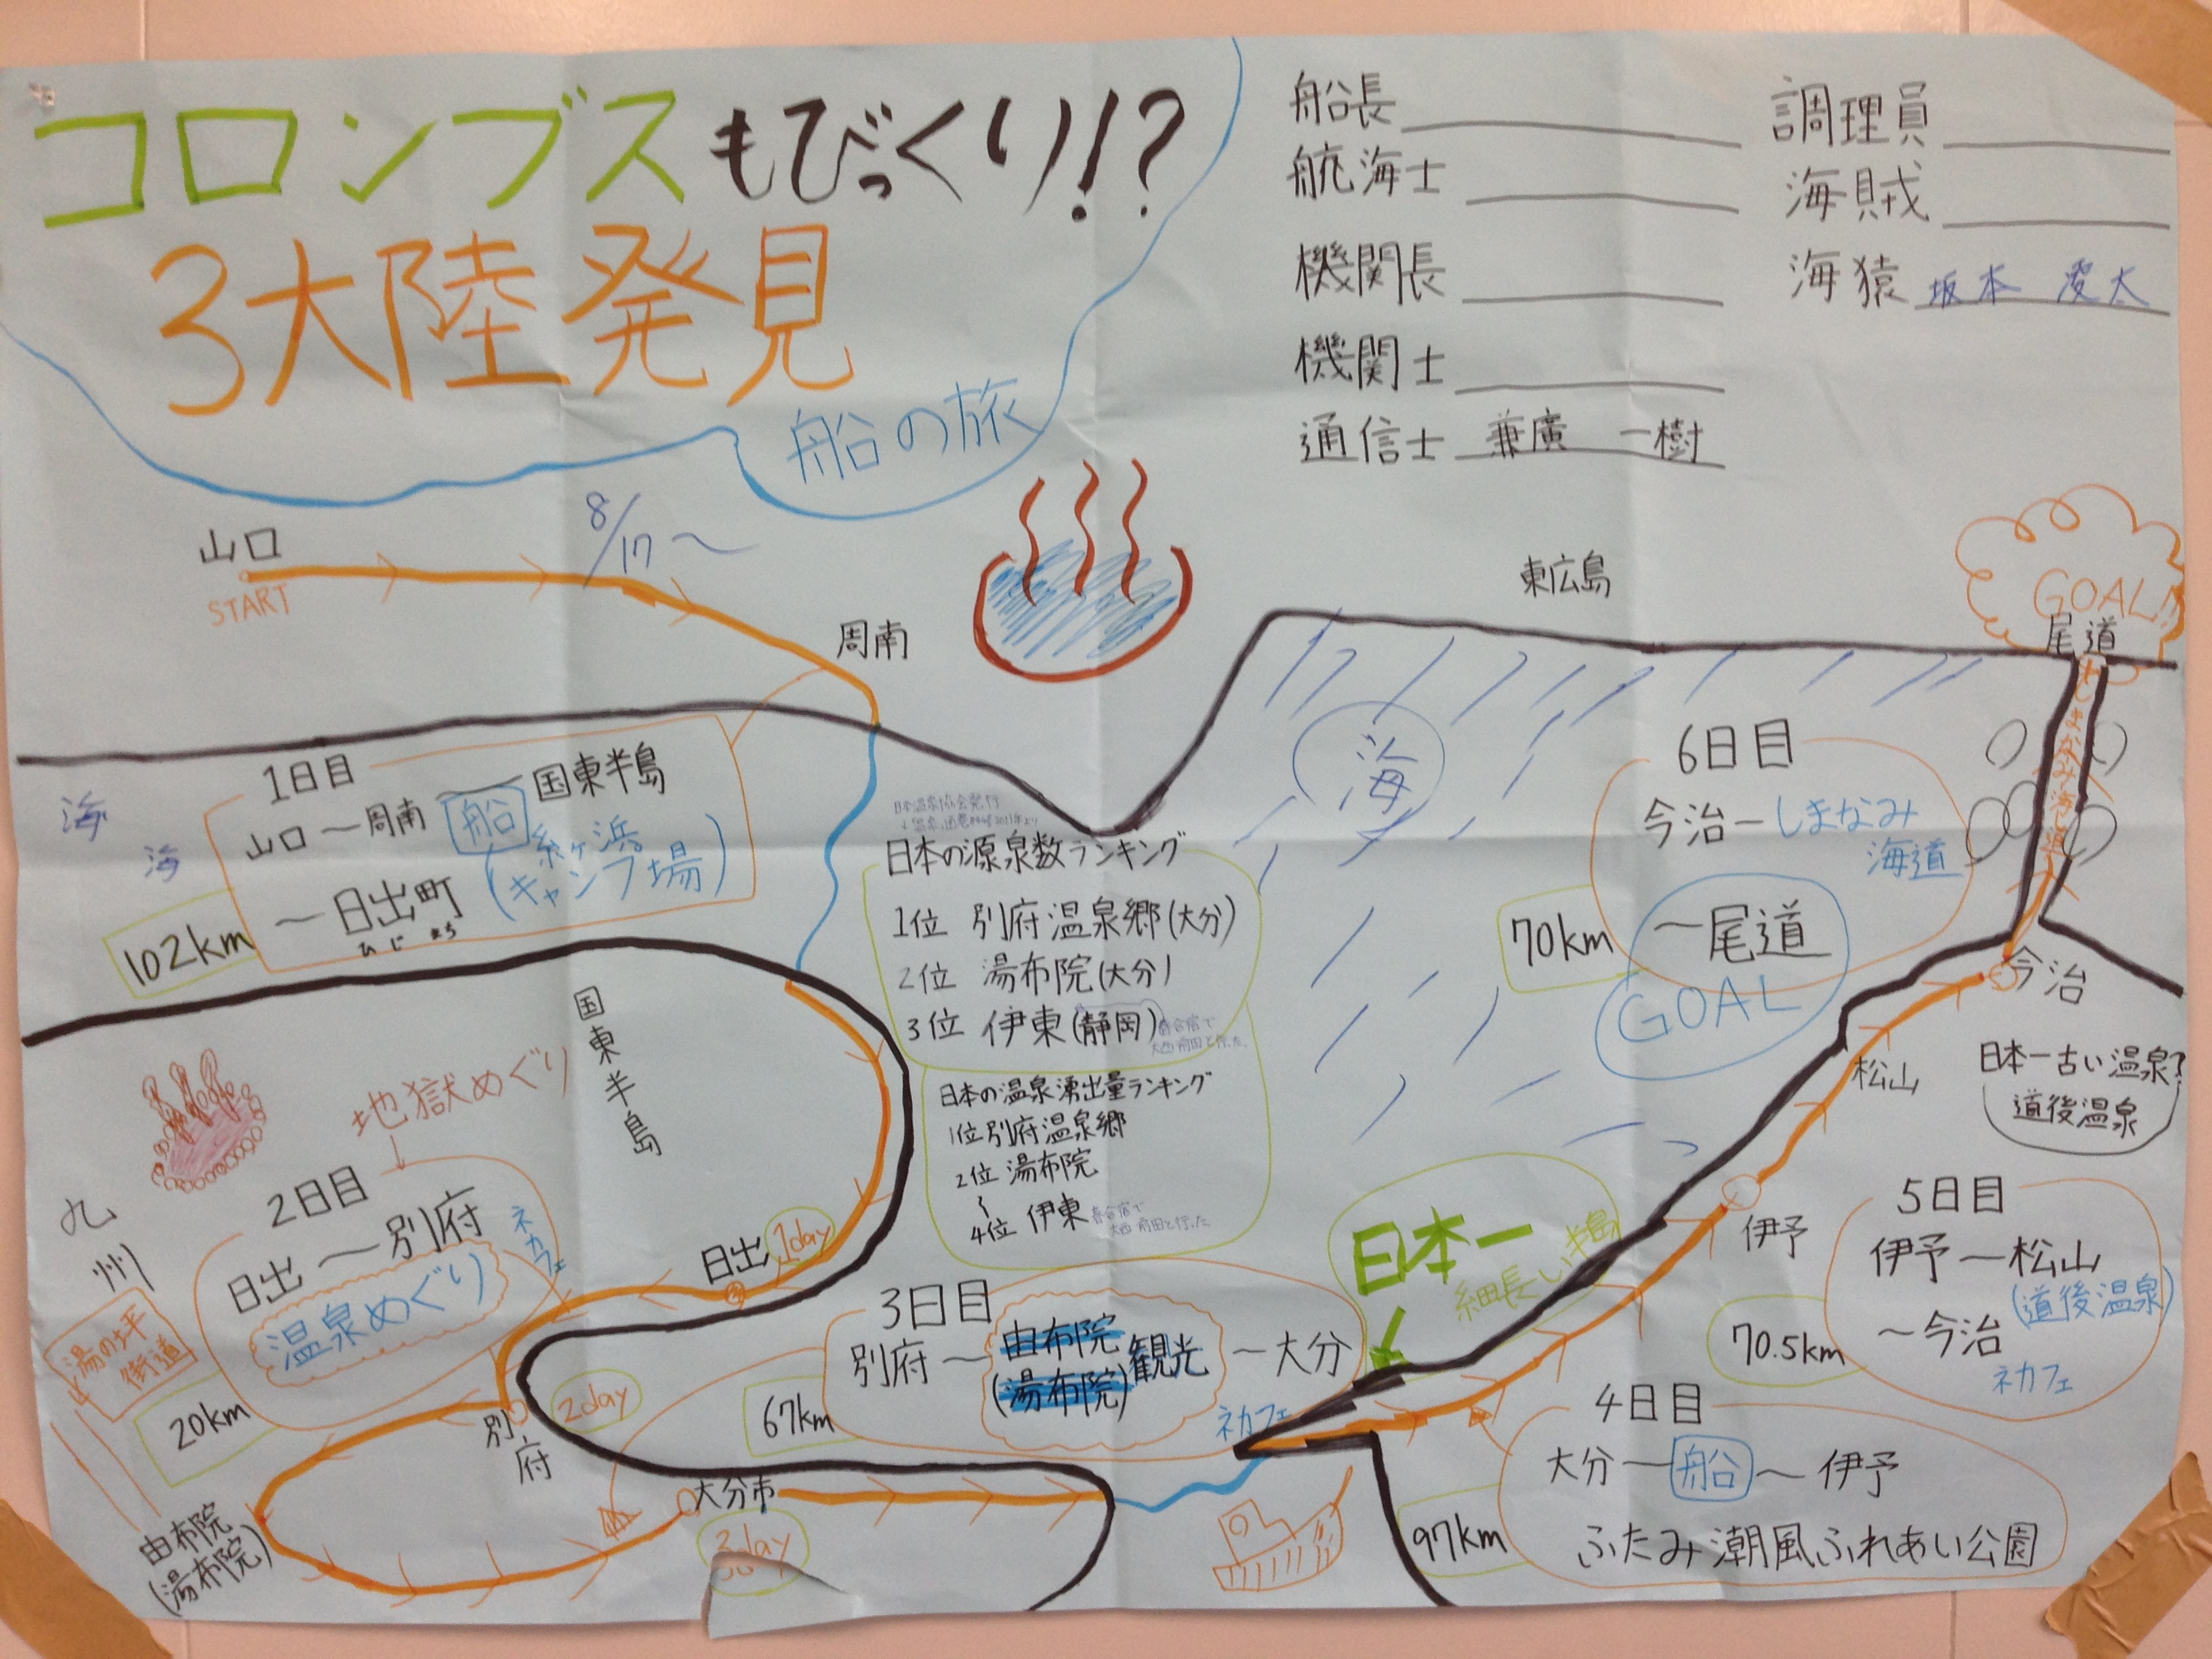 コロンブスもびっくり!?
3大陸発見
船の旅
船長
航海士
機関長
機関士
通信士 兼廣 一樹
調理員
海賊
海猿 坂本
山口
START
8/17〜
周南
東広島
GOAL!!
尾道
しまなみ海道
海
海
海
1日目
山口〜周南 船 国東半島
〜日出町 (糸ヶ浜
キャンプ場)
ひじまち
102km
日本温泉協会発行
日本の源泉数ランキング
1位 別府温泉郷(大分)
2位 湯布院(大分)
3位 伊東(静岡) 春合宿で
大西前田と行った
日本の温泉湧出量ランキング
1位 別府温泉郷
2位 湯布院
〜
4位 伊東 春合宿で
大西前田と行った
6日目
今治ーしまなみ
海道
〜尾道
GOAL
70km
今治
松山
日本一古い温泉?
道後温泉
国東半島
地獄めぐり
九州
2日目
日出〜別府
ネカフェ
温泉めぐり
20km
湯の坪
街道
日出 1day
別府
2day
由布院
(湯布院)
3日目
別府〜由布院
(湯布院)観光〜大分
ネカフェ
67km
大分市
3day
日本一
細長い半島
伊予
5日目
伊予ー松山
(道後温泉)
〜今治
ネカフェ
70.5km
4日目
大分ー船〜伊予
ふたみ潮風ふれあい公園
97km